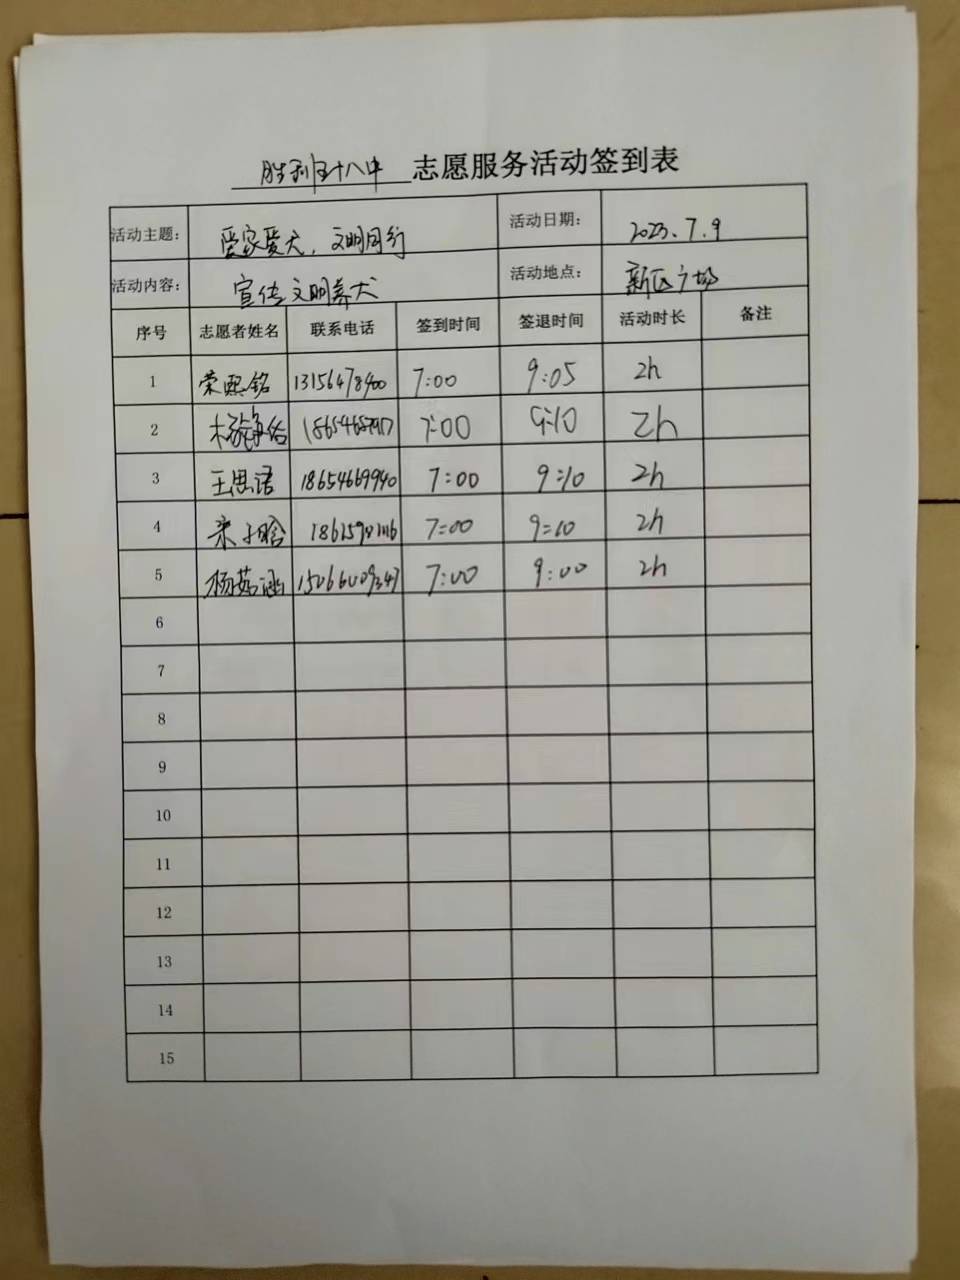 胜利五十八中 志愿服务活动签到表
活动主题： 爱家爱犬，文明同行 活动日期： 2023.7.9
活动内容： 宣传文明养犬 活动地点： 新区广场
序号 志愿者姓名 联系电话 签到时间 签退时间 活动时长 备注
1 荣熙铭 13156478400 7:00 9:05 2h
2 7:00 9:10 2h
3 王思语 18654669940 7:00 9:10 2h
4 7:00 9:10 2h
5 杨茹涵 7:00 9:00 2h
6
7
8
9
10
11
12
13
14
15